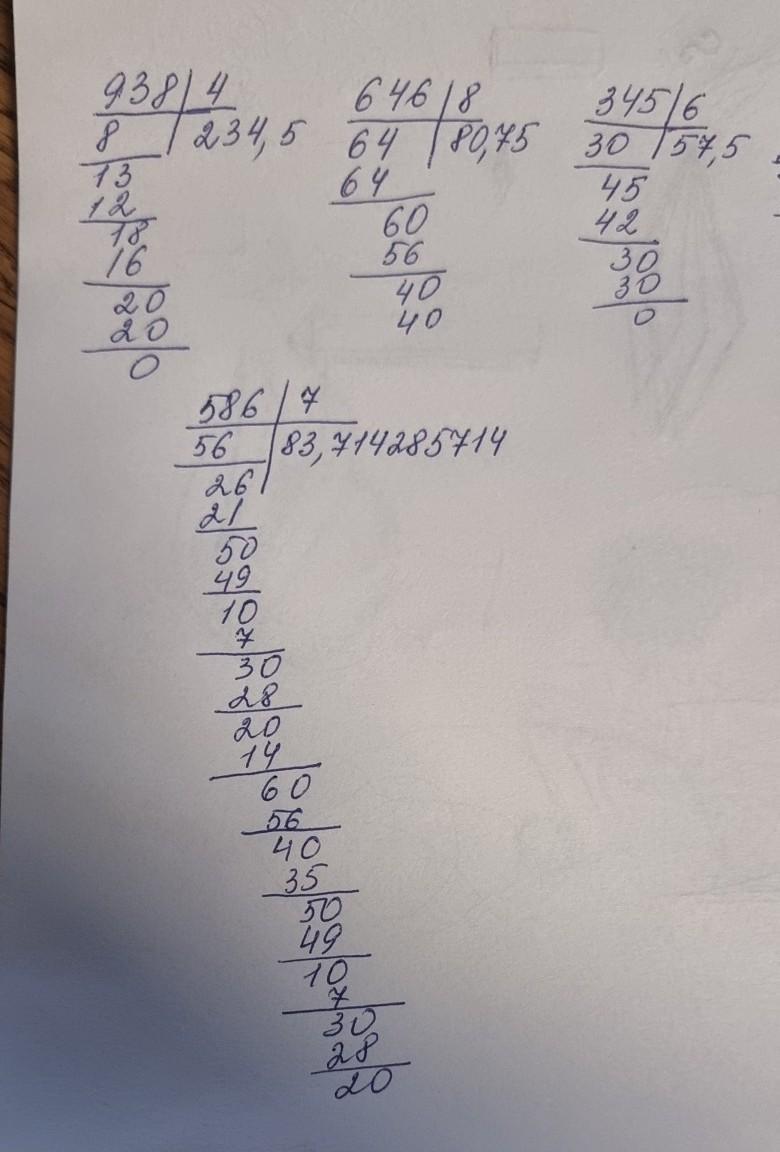 938 4
8 234,5
13
12
18
16
20
20
0
646 8
64 80,75
64
60
56
40
40
345 6
30 57,5
45
42
30
30
0
586 7
56 83,714285714
26
21
50
49
10
7
30
28
20
14
60
56
40
35
50
49
10
7
30
28
20